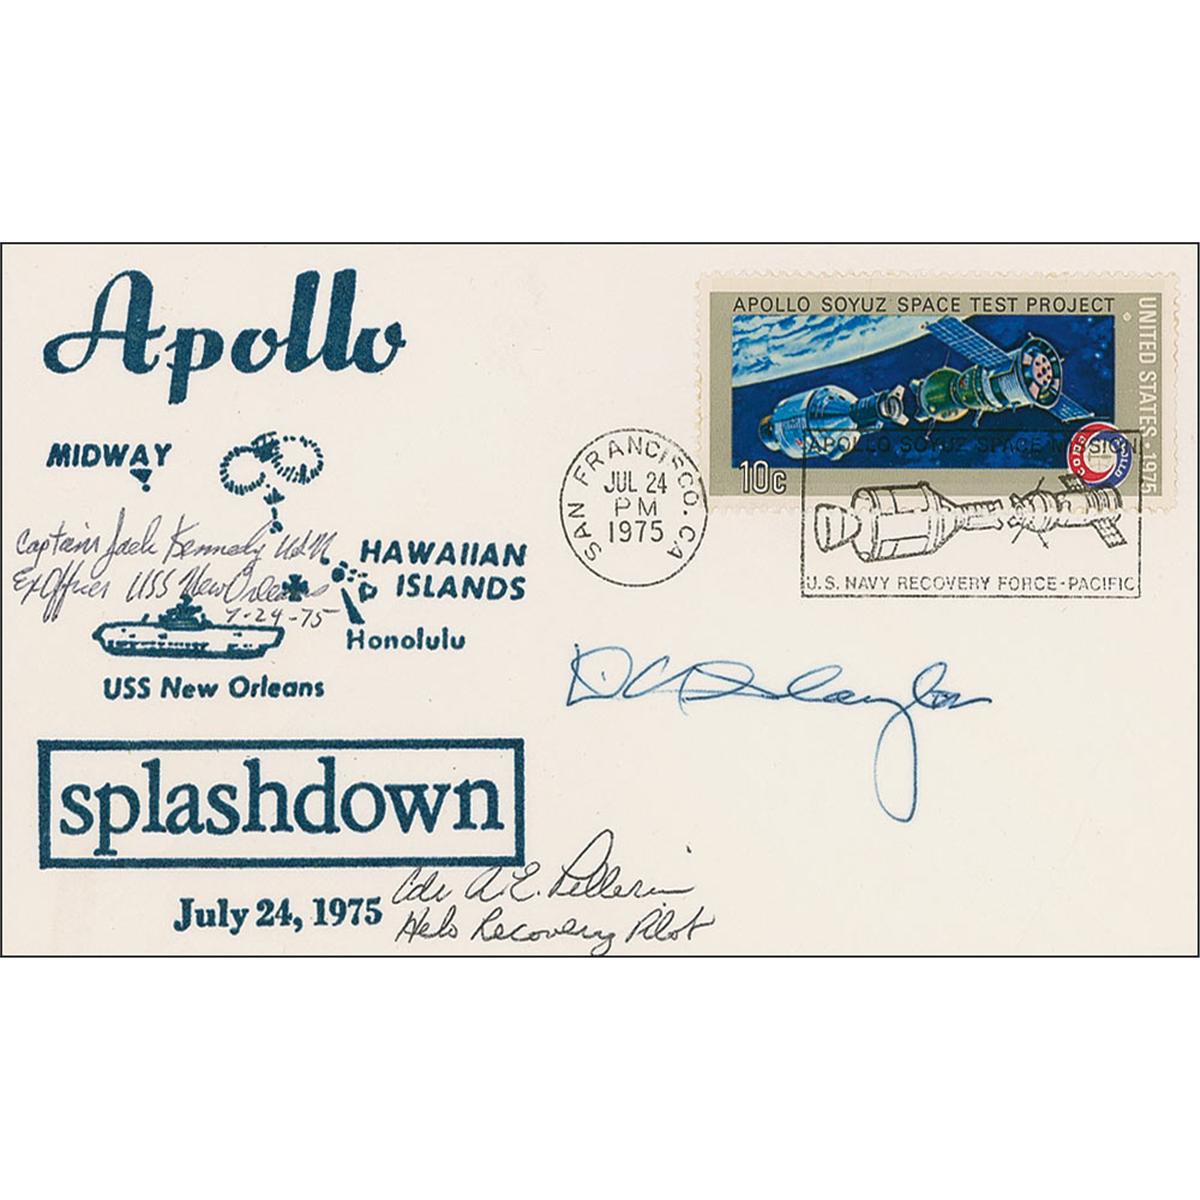 Apollo
MIDWAY
Captain Jack Kennedy USN
Ex Officer USS New Orleans
7-24-75
HAWAIIAN
ISLANDS
Honolulu
USS New Orleans
splashdown
July 24, 1975
Cdr A.E. Pellerin
Helo Recovery Pilot
APOLLO SOYUZ SPACE TEST PROJECT
UNITED STATES • 1975
10c
SAN FRANCISCO, CA
JUL 24
PM
1975
APOLLO SOYUZ SPACE MISSION
U.S. NAVY RECOVERY FORCE-PACIFIC
D K Slayton